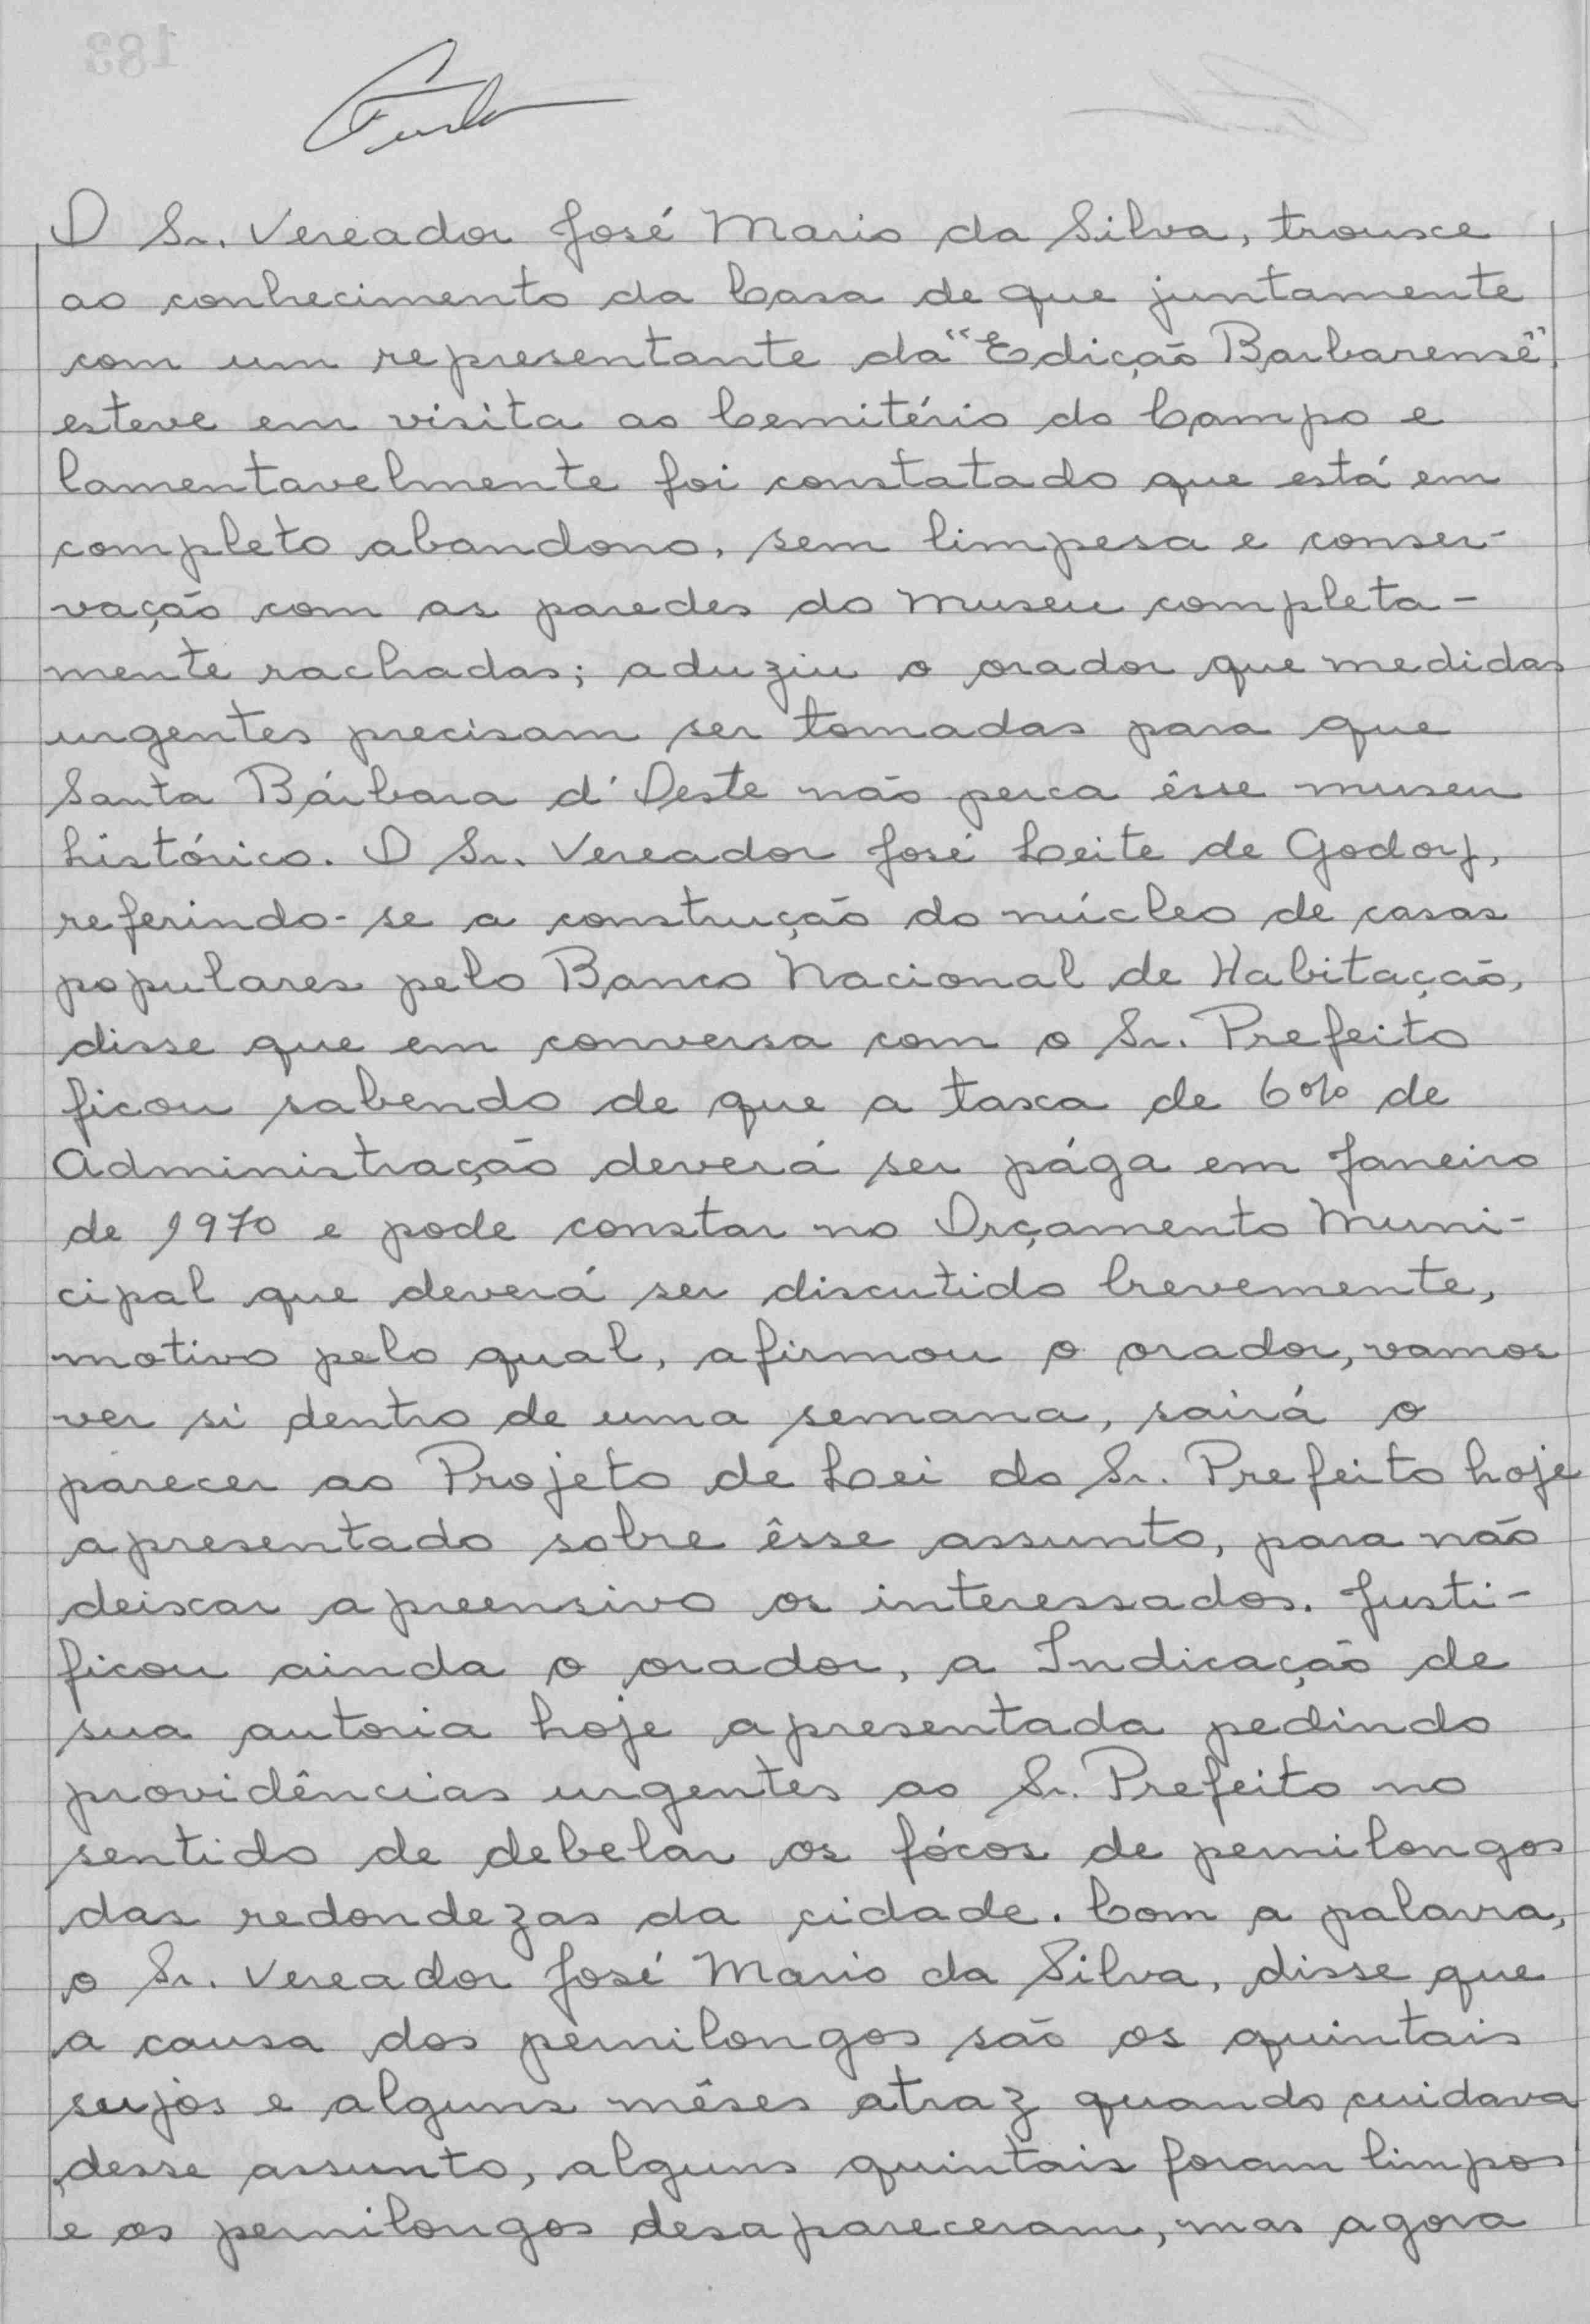 O Sr. Vereador José Maria da Silva, trouxe
ao conhecimento da Casa de que juntamente
com um representante da "Edição Barbarense",
esteve em visita ao Cemitério do Campo e
lamentavelmente foi constatado que está em
completo abandono, sem limpesa e conser-
vação com as paredes do Museu completa-
mente rachadas; aduziu o orador que medidas
urgentes precisam ser tomadas para que
Santa Bárbara d'Oeste não perca êsse museu
histórico. O Sr. Vereador José Leite de Godoy,
referindo-se a construção do núcleo de casas
populares pelo Banco Nacional de Habitação,
disse que em conversa com o Sr. Prefeito
ficou sabendo de que a taxa de 6% de
Administração deverá ser pága em Janeiro
de 1970 e pode constar no Orçamento Muni-
cipal que deverá ser discutido brevemente,
motivo pelo qual, afirmou o orador, vamos
ver si dentro de uma semana, sairá o
parecer ao Projeto de Lei do Sr. Prefeito hoje
apresentado sobre êsse assunto, para não
deixar apreensivo os interessados. Justi-
ficou ainda o orador, a Indicação de
sua autoria hoje apresentada pedindo
providências urgentes ao Sr. Prefeito no
sentido de debelar os fócos de pernilongos
das redondezas da cidade. Com a palavra,
o Sr. Vereador José Maria da Silva, disse que
a causa dos pernilongos são os quintais
sujos e alguns mêses atraz quando cuidava
desse assunto, alguns quintais foram limpos
e os pernilongos desapareceram, mas agora